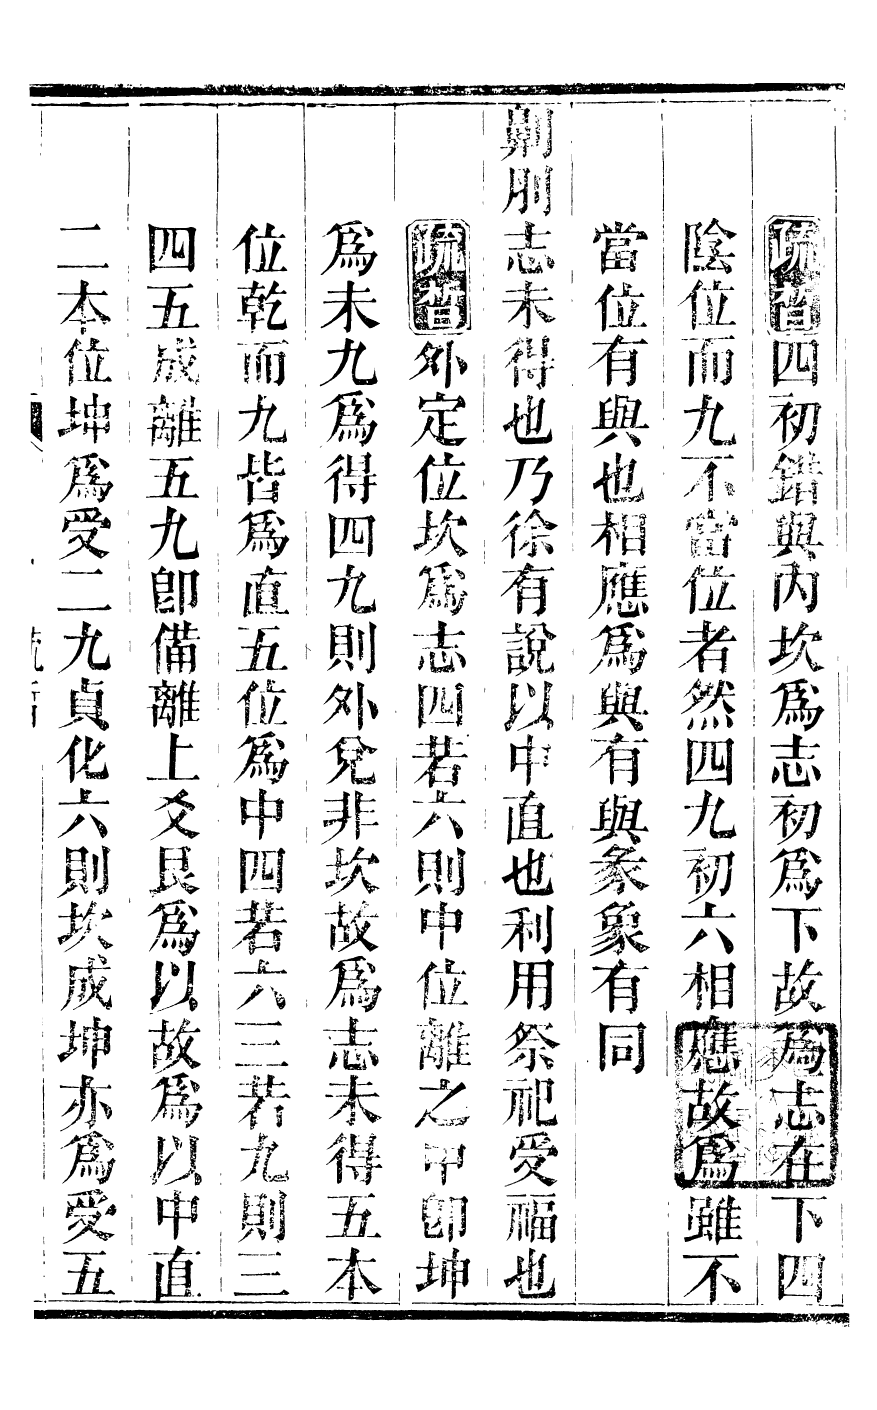 疏晳四初錯與內坎爲志初爲下故爲志在下四
陰位而九不當位者然四九初六相應故爲雖不
當位有與也相應爲與有與彖象有同
劓刖志未得也乃徐有說以中直也利用祭祀受福也
疏晳外定位坎爲志四若六則中位離之中卽坤
爲未九爲得四九則外兌非坎故爲志未得五本
位乾而九皆爲直五位爲中四若六三若九則三
四五成離五九卽備離上爻艮爲以故爲以中直
二本位坤爲受二九貞化六則坎成坤亦爲受五